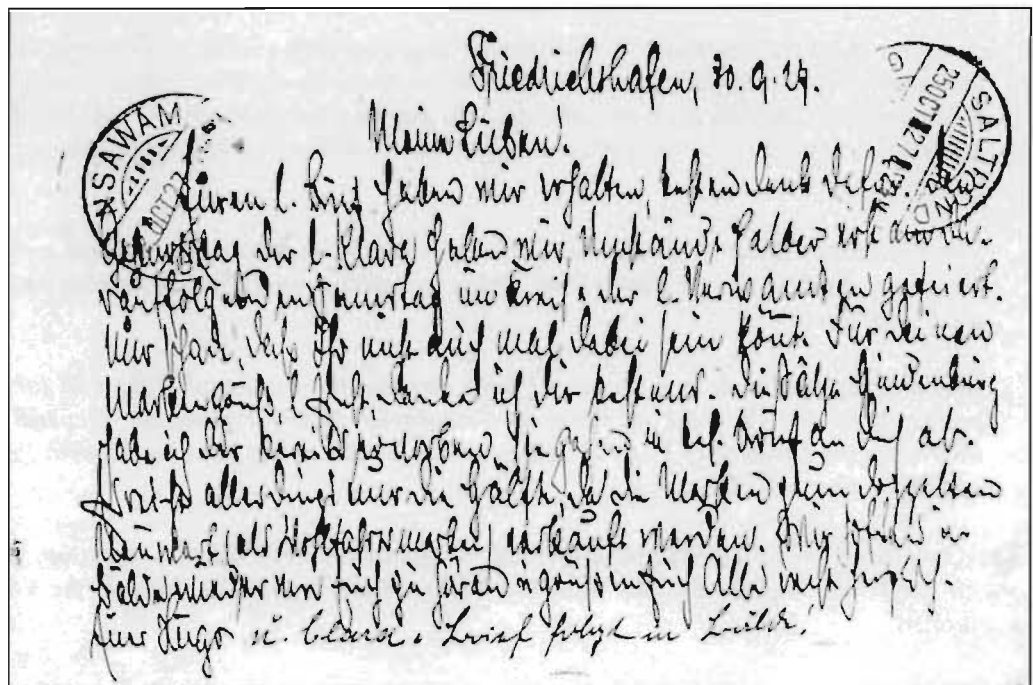 Friedrichshafen, 30.9.27.
Meine Lieben!
NSAWAM
OCT 27
SALTPOND
25 OC 27
Euren l. Brief haben wir erhalten, besten Dank dafür. Den
Geburtstag der l. Klara haben wir Umstände halber erst am
darauffolgenden Samstag im Kreise der l. Verwandten gefeiert.
Nur schade, daß Ihr nicht auch mal dabei sein könnt. Für Deinen
Markengruß, l. danke ich Dir bestens. Die Sätze Hindenburg
habe ich Dir bereits erworben, sie gehen in bes. Brief an Dich ab.
allerdings nur die Hälfte, da die Marken zum doppelten
Nennwert (als Wohlfahrtsmarken) verkauft werden. Wir hoffen in
Bälde wieder von Euch zu hören u. grüßen Euch Alle recht herzlich.
Euer Hugo u. Clara. Brief folgt in Bälde!